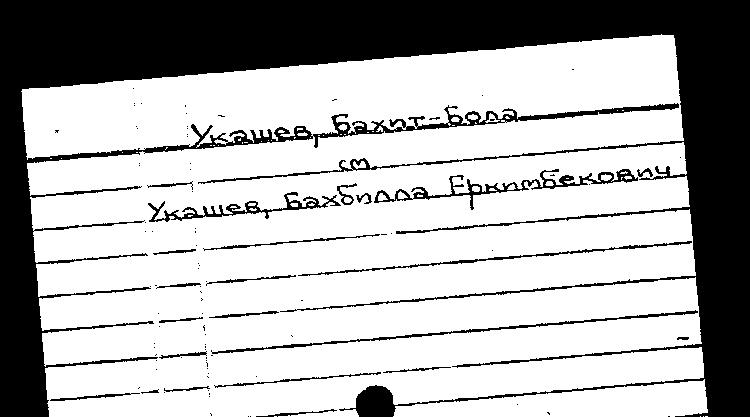 Укашев, Бахит-Бола
см.
Укашев, Бахбилла Еркимбекович